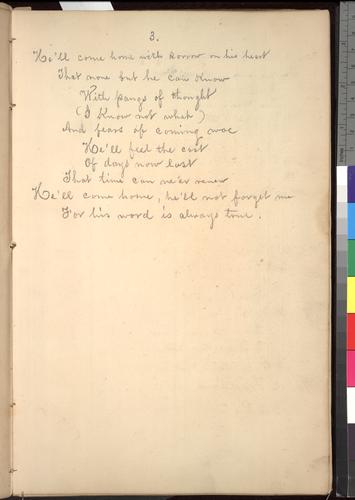 3.
He'll come home with sorrow on his heart
That none but he can know
With pangs of thought
(I know not what)
And fears of coming woe
He'll feel the cost
Of days now lost
That time can ne'er renew
He'll come home, he'll not forget me
For his word is always true.